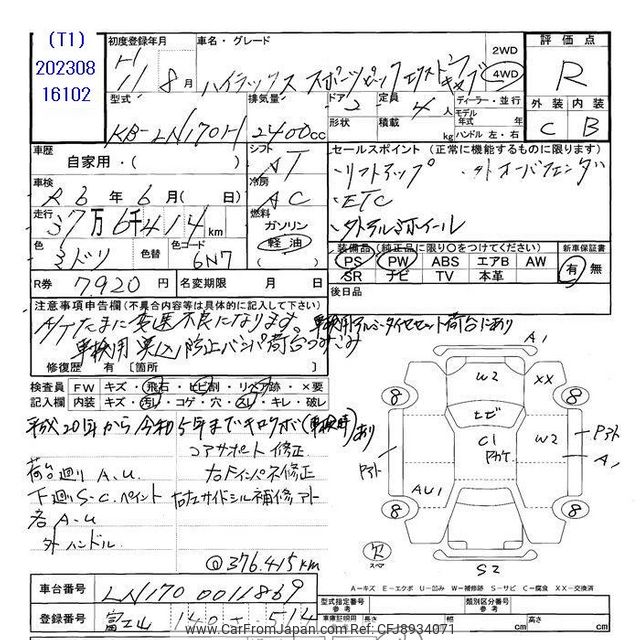 (T1)
202308
16102
初度登録年月
H11 年 8 月
車名・グレード
ハイラックス スポーツピック エクストラキャブ
2WD
4WD
評価点
R
外装 内装
C B
型式
KB-LN170H
排気量
2400 cc
ドア 2
形状
定員 4 人
積載 kg
ディーラー・並行
モデル年式 年式
ハンドル 左・右
車歴
自家用・( )
シフト
AT
セールスポイント (正常に機能するものに限ります)
・リフトアップ ・外オーバフェンダ
・ETC
・外アルミホイール
車検
R 6 年 6 月 ( 日)
冷房
AC
走行
37万6千414 km
燃料
ガソリン
軽油
色
ミドリ
色替
色コード
6N7
装備品 (純正品に限り○をつけてください)
PS PW ABS エアB AW
SR ナビ TV 本革
新車保証書
有 無
R券 7,920 円
名変期限 年 月 日
後日品
注意事項申告欄 (不具合内容等は具体的に記入して下さい)
ATたまに変速不良になります。車検用アルミタイヤセット荷台にあり
車検用 突込防止バンパ荷台つみこみ
修復歴 有 〔箇所 〕
検査員記入欄
FW キズ・飛石・ヒビ割・リペア跡・×要
内装 キズ・汚レ・コゲ・穴・スレ・キレ・破レ
平成20年から令和5年までキロクボ(車検時)あり
コアサポート 修正
荷台廻り A.U
右Fインパネ修正
下廻りS.C.ペイント
右左サイドシル補修アト
者 A.U
外 ハンドル
@376.415km
A1
W2
XX
8
8
ヒビ
C1
W2
アト
アト
A1
AU1
8
8
欠
スペア
S2
A−キズ E−エクボ U−凹み W−補修跡 S−サビ C−腐食 XX−交換済
車台番号 LN170 0011869
登録番号 富士山 140 514
型式指定番号 参考
類別区分番号 参考
cm
幅 cm
高さ cm
www.CarFromJapan.com Ref: CFJ8934071